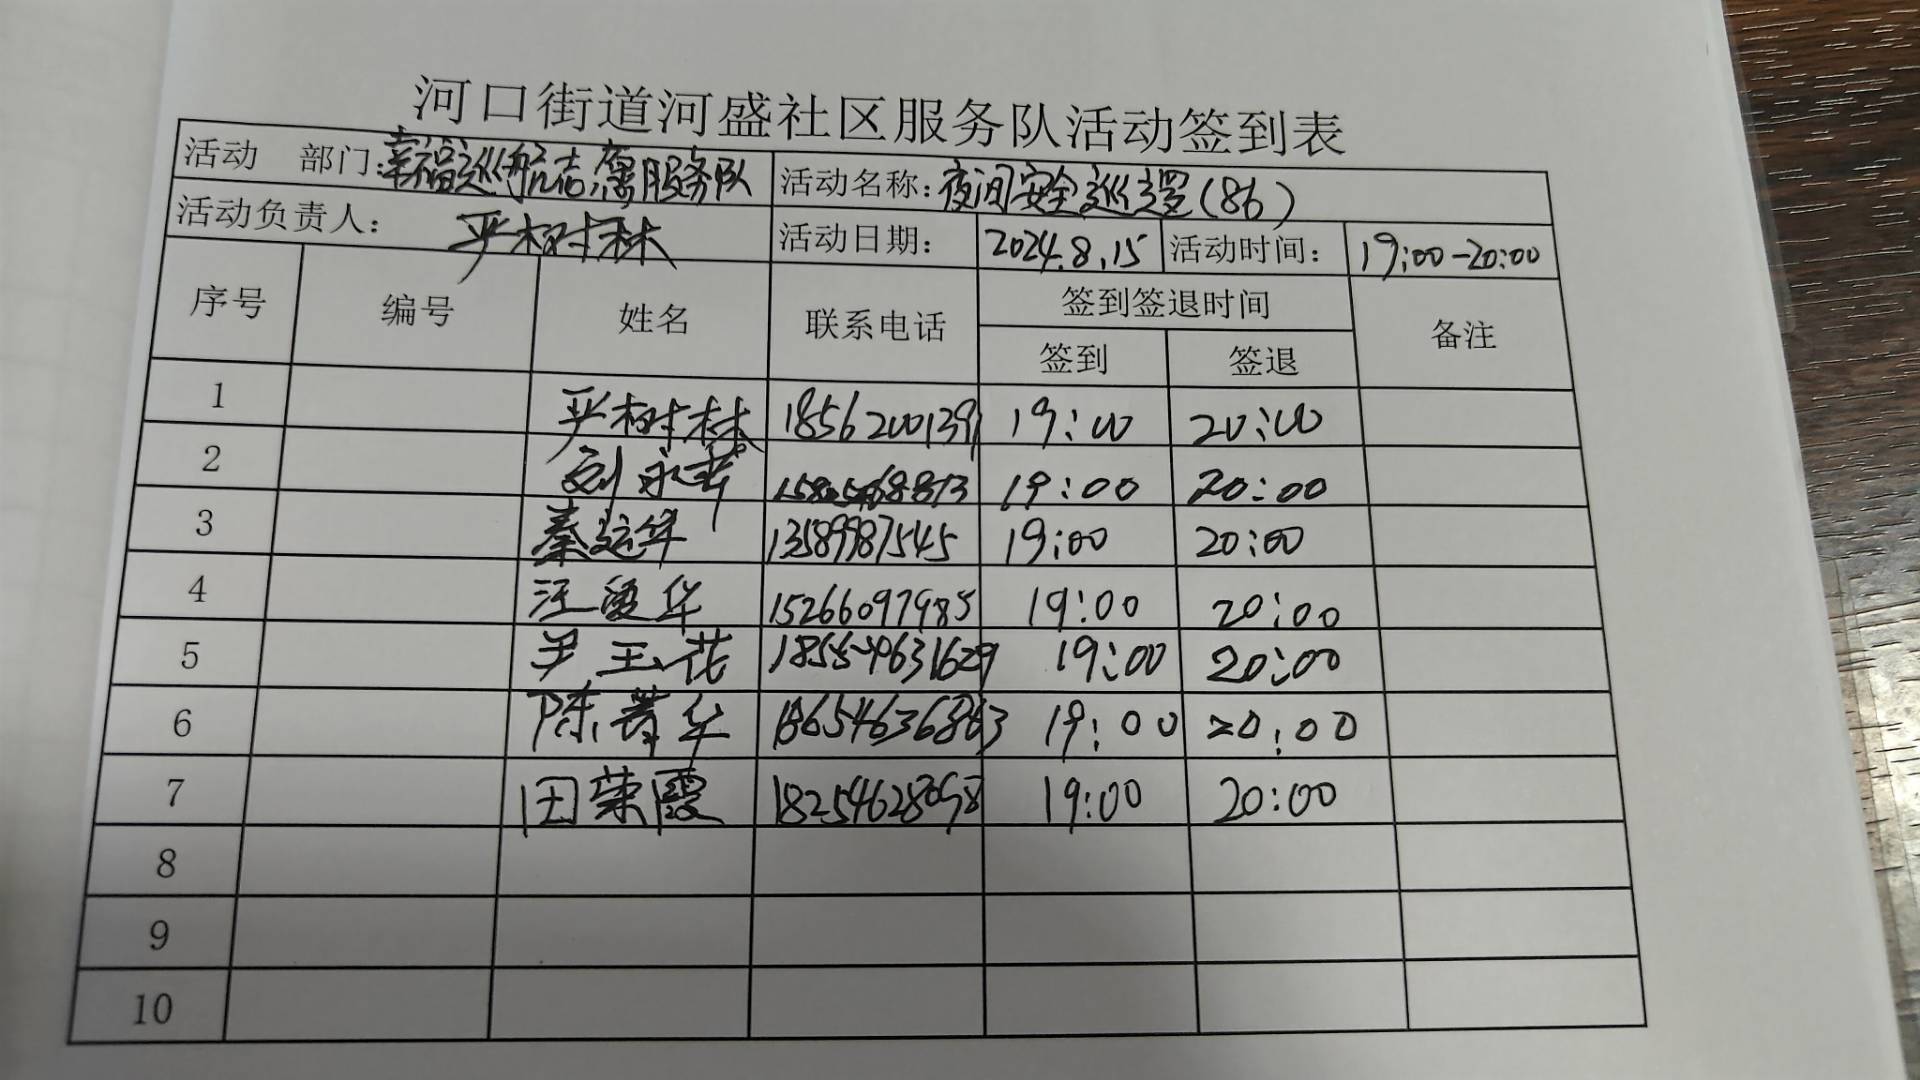 河口街道河盛社区服务队活动签到表
活动 部门:幸福巡航志愿服务队 活动名称:夜间安全巡逻(86)
活动负责人: 严树林 活动日期: 2024.8.15 活动时间: 19:00-20:00
序号 编号 姓名 联系电话 签到签退时间 备注
签到 签退
1 严树林 18562001391 19:00 20:00
2 刘永芹 19:00 20:00
3 秦延华 13589987545 19:00 20:00
4 汪爱华 15266097985 19:00 20:00
5 尹玉花 18554631629 19:00 20:00
6 陈菁华 18654636863 19:00 20:00
7 田荣霞 18254628098 19:00 20:00
8
9
10